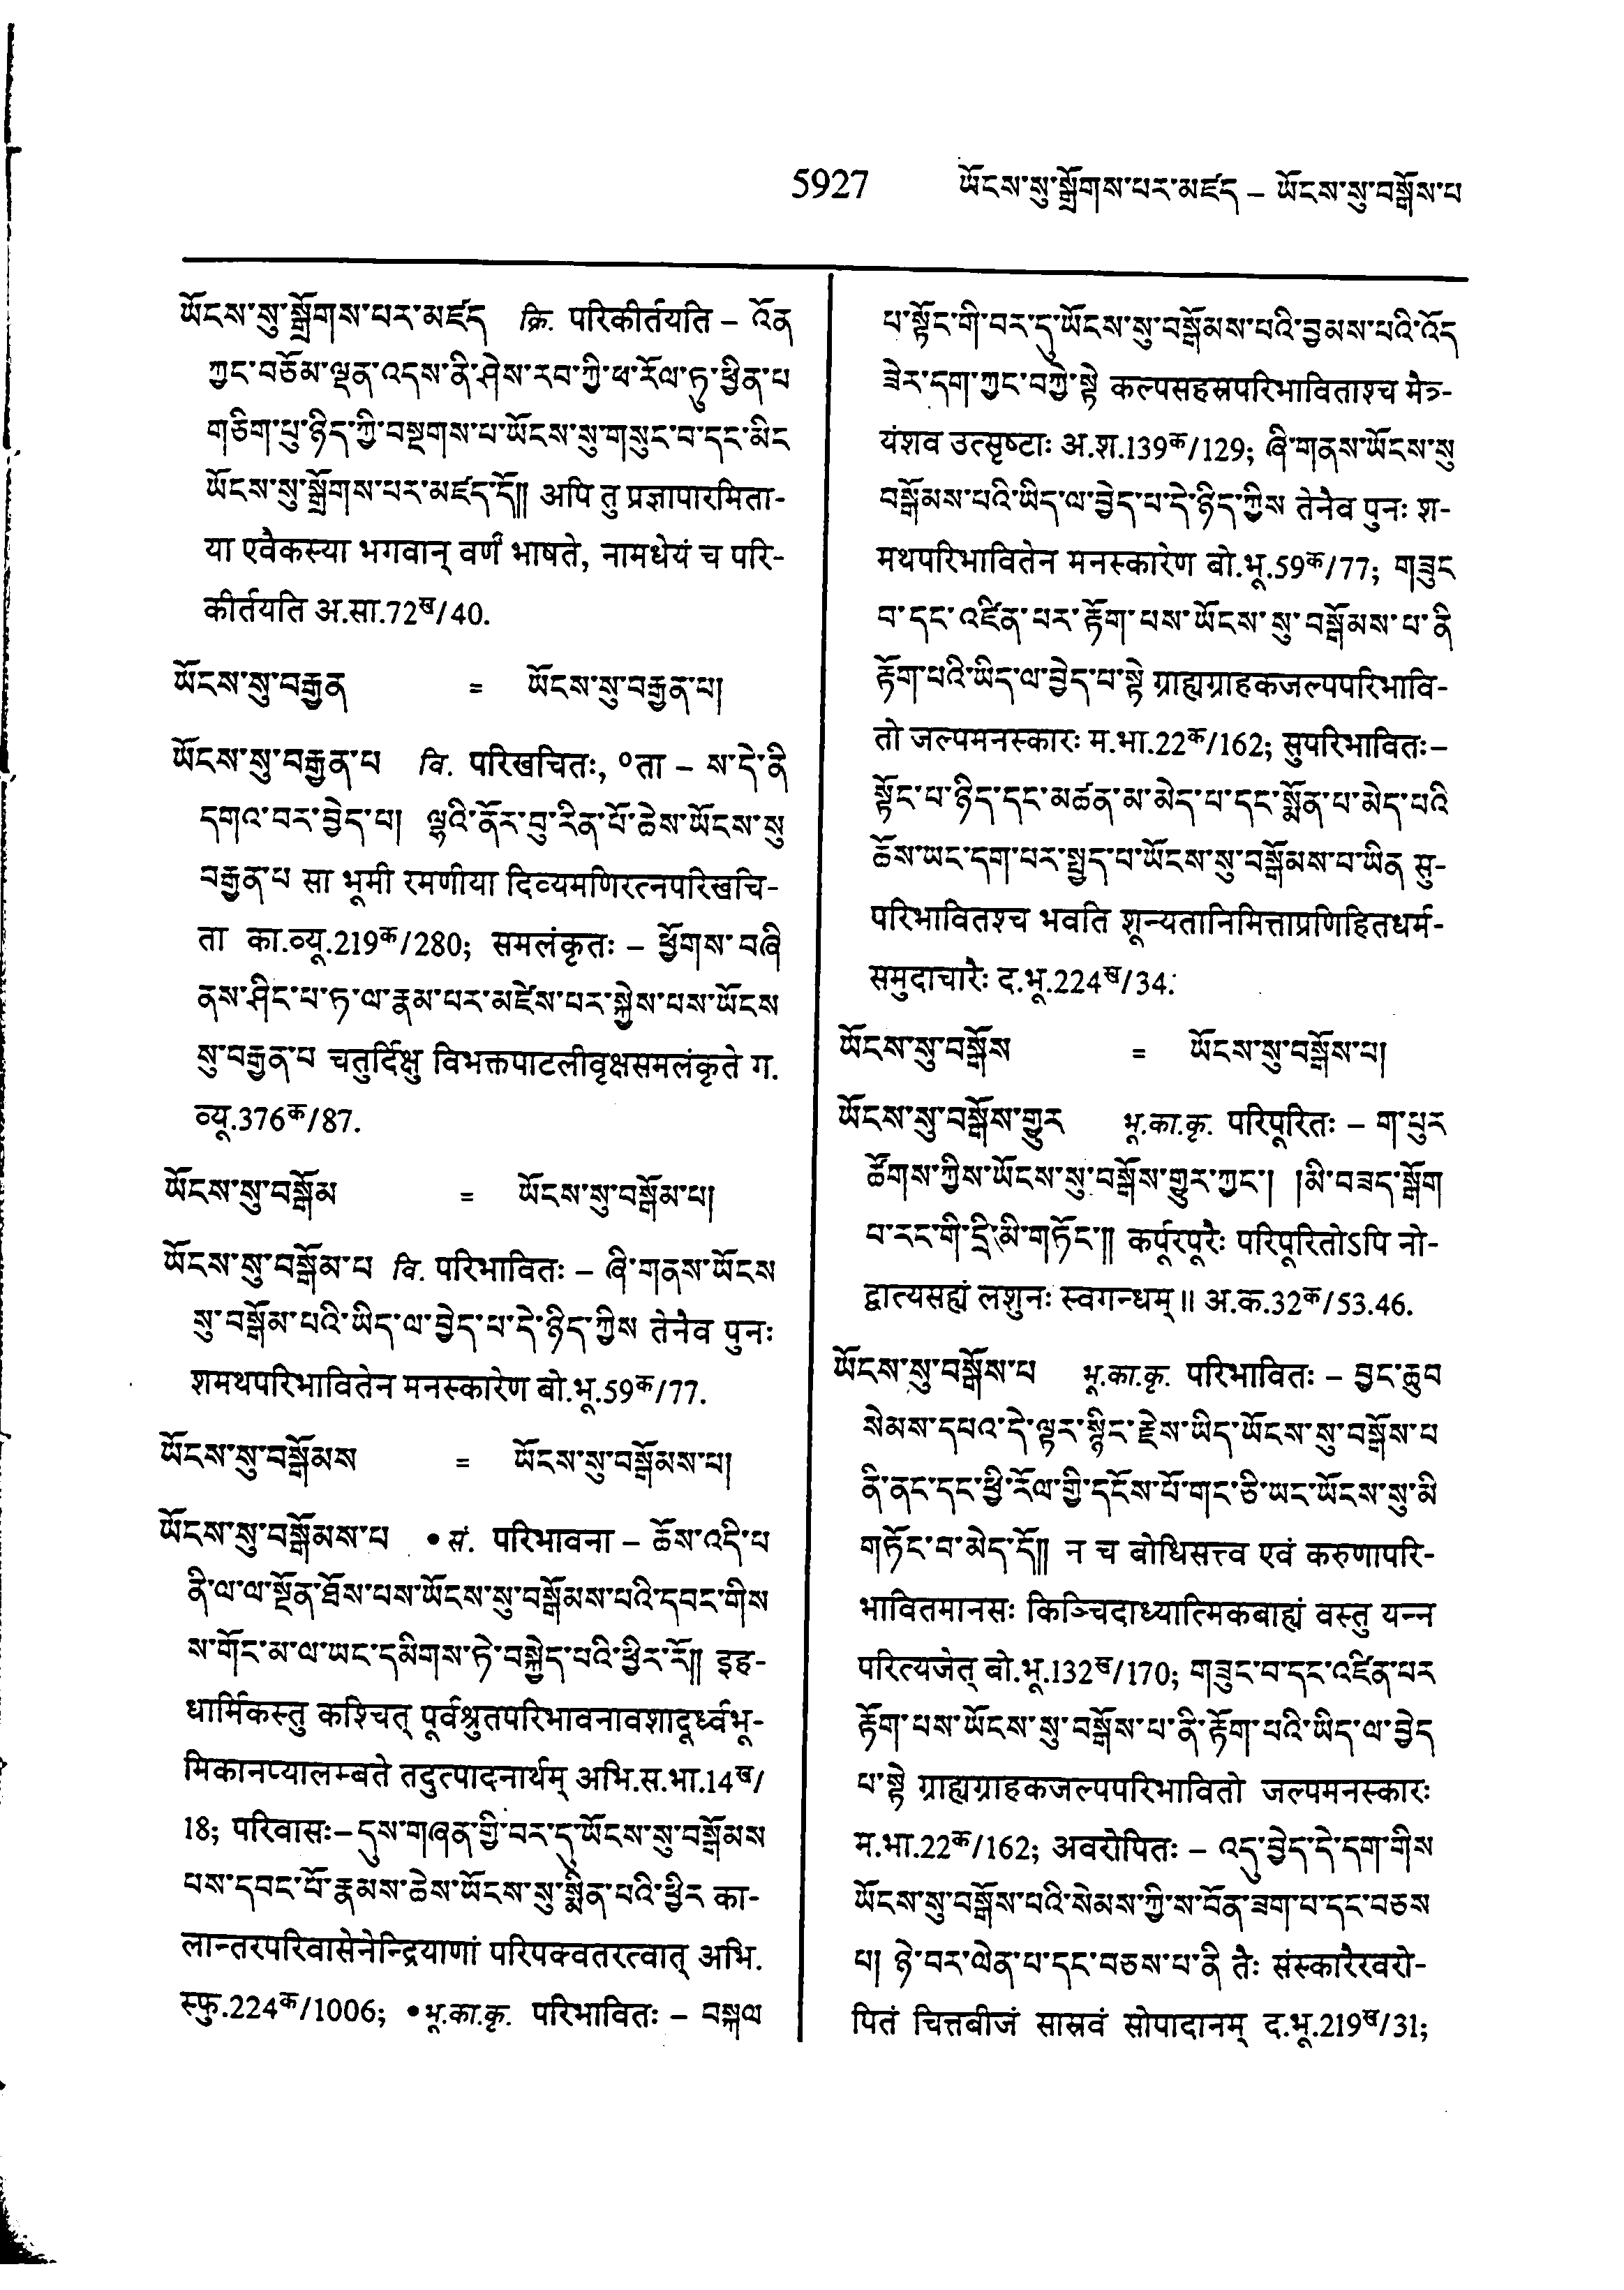 5927 ཡོངས་སུ་སྒྲོགས་པར་མཛད – ཡོངས་སུ་བསྒོས་པ
ཡོངས་སུ་སྒྲོགས་པར་མཛད क्रि. परिकीर्तयति – འོན
ཀྱང་བཅོམ་ལྡན་འདས་ནི་ཤེས་རབ་ཀྱི་ཕ་རོལ་ཏུ་ཕྱིན་པ
གཅིག་པུ་ཉིད་ཀྱི་བསྔགས་པ་ཡོངས་སུ་གསུང་བ་དང་མིང
ཡོངས་སུ་སྒྲོགས་པར་མཛད་དོ༎ अपि तु प्रज्ञापारमिता-
या एवैकस्या भगवान् वर्णं भाषते, नामधेयं च परि-
कीर्तयति अ.सा.72ख/40.
ཡོངས་སུ་བརྒྱན = ཡོངས་སུ་བརྒྱན་པ།
ཡོངས་སུ་བརྒྱན་པ वि. परिखचितः, ०ता – ས་དེ་ནི
དགའ་བར་བྱེད་པ། ལྷའི་ནོར་བུ་རིན་པོ་ཆེས་ཡོངས་སུ
བརྒྱན་པ सा भूमी रमणीया दिव्यमणिरत्नपरिखचि-
ता का.व्यू.219क/280; समलंकृतः – ཕྱོགས་བཞི
ནས་ཤིང་པ་ཏ་ལ་རྣམ་པར་མཛེས་པར་སྐྱེས་པས་ཡོངས
སུ་བརྒྱན་པ चतुर्दिक्षु विभक्तपाटलीवृक्षसमलंकृते ग.
व्यू.376क/87.
ཡོངས་སུ་བསྒོམ = ཡོངས་སུ་བསྒོམ་པ།
ཡོངས་སུ་བསྒོམ་པ वि. परिभावितः – ཞི་གནས་ཡོངས
སུ་བསྒོམ་པའི་ཡིད་ལ་བྱེད་པ་དེ་ཉིད་ཀྱིས तेनैव पुनः
शमथपरिभावितेन मनस्कारेण बो.भू.59क/77.
ཡོངས་སུ་བསྒོམས = ཡོངས་སུ་བསྒོམས་པ།
ཡོངས་སུ་བསྒོམས་པ • सं. परिभावना – ཆོས་འདི་པ
ནི་ལ་ལ་སྔོན་ཐོས་པས་ཡོངས་སུ་བསྒོམས་པའི་དབང་གིས
ས་གོང་མ་ལ་ཡང་དམིགས་ཏེ་བསྐྱེད་པའི་ཕྱིར་རོ༎ इह-
धार्मिकस्तु कश्चित् पूर्वश्रुतपरिभावनावशादूर्ध्वभू-
मिकानप्यालम्बते तदुत्पादनार्थम् अभि.स.भा.14ख/
18; परिवासः– དུས་གཞན་གྱི་བར་དུ་ཡོངས་སུ་བསྒོམས
པས་དབང་པོ་རྣམས་ཆེས་ཡོངས་སུ་སྨིན་པའི་ཕྱིར का-
लान्तरपरिवासेनेन्द्रियाणां परिपक्वतरत्वात् अभि.
स्फु.224क/1006; • भू.का.कृ. परिभावितः – བསྐལ
པ་སྟོང་གི་བར་དུ་ཡོངས་སུ་བསྒོམས་པའི་བྱམས་པའི་འོད
ཟེར་དག་ཀྱང་བཀྱེ་སྟེ कल्पसहस्रपरिभाविताश्च मैत्र-
यंशव उत्सृष्टाः अ.श.139क/129; ཞི་གནས་ཡོངས་སུ
བསྒོམས་པའི་ཡིད་ལ་བྱེད་པ་དེ་ཉིད་ཀྱིས तेनैव पुनः श-
मथपरिभावितेन मनस्कारेण बो.भू.59क/77; གཟུང
བ་དང་འཛིན་པར་རྟོག་པས་ཡོངས་སུ་བསྒོམས་པ་ནི
རྟོག་པའི་ཡིད་ལ་བྱེད་པ་སྟེ ग्राह्यग्राहकजल्पपरिभावि-
तो जल्पमनस्कारः म.भा.22क/162; सुपरिभावितः–
སྟོང་པ་ཉིད་དང་མཚན་མ་མེད་པ་དང་སྨོན་པ་མེད་པའི
ཆོས་ཡང་དག་པར་སྤྱད་པ་ཡོངས་སུ་བསྒོམས་པ་ཡིན सु-
परिभावितश्च भवति शून्यतानिमित्ताप्रणिहितधर्म-
समुदाचारैः द.भू.224ख/34.
ཡོངས་སུ་བསྒོས = ཡོངས་སུ་བསྒོས་པ།
ཡོངས་སུ་བསྒོས་གྱུར भू.का.कृ. परिपूरितः – ག་པུར
ཚོགས་ཀྱིས་ཡོངས་སུ་བསྒོས་གྱུར་ཀྱང་། །མི་བཟད་སྒོག
པ་རང་གི་དྲི་མི་གཏོང་༎ कर्पूरपूरैः परिपूरितोऽपि नो-
द्वात्यसह्यं लशुनः स्वगन्धम्॥ अ.क.32क/53.46.
ཡོངས་སུ་བསྒོས་པ भू.का.कृ. परिभावितः – བྱང་ཆུབ
སེམས་དཔའ་དེ་ལྟར་སྙིང་རྗེས་ཡིད་ཡོངས་སུ་བསྒོས་པ
ནི་ནང་དང་ཕྱི་རོལ་གྱི་དངོས་པོ་གང་ཅི་ཡང་ཡོངས་སུ་མི
གཏོང་བ་མེད་དོ༎ न च बोधिसत्त्व एवं करुणापरि-
भावितमानसः किञ्चिदाध्यात्मिकबाह्यं वस्तु यन्न
परित्यजेत् बो.भू.132ख/170; གཟུང་བ་དང་འཛིན་པར
རྟོག་པས་ཡོངས་སུ་བསྒོས་པ་ནི་རྟོག་པའི་ཡིད་ལ་བྱེད
པ་སྟེ ग्राह्यग्राहकजल्पपरिभावितो जल्पमनस्कारः
म.भा.22क/162; अवरोपितः – འདུ་བྱེད་དེ་དག་གིས
ཡོངས་སུ་བསྒོས་པའི་སེམས་ཀྱི་ས་བོན་ཟག་པ་དང་བཅས
པ། ཉེ་བར་ལེན་པ་དང་བཅས་པ་ནི तैः संस्कारैरवरो-
पितं चित्तबीजं सास्रवं सोपादानम् द.भू.219ख/31;